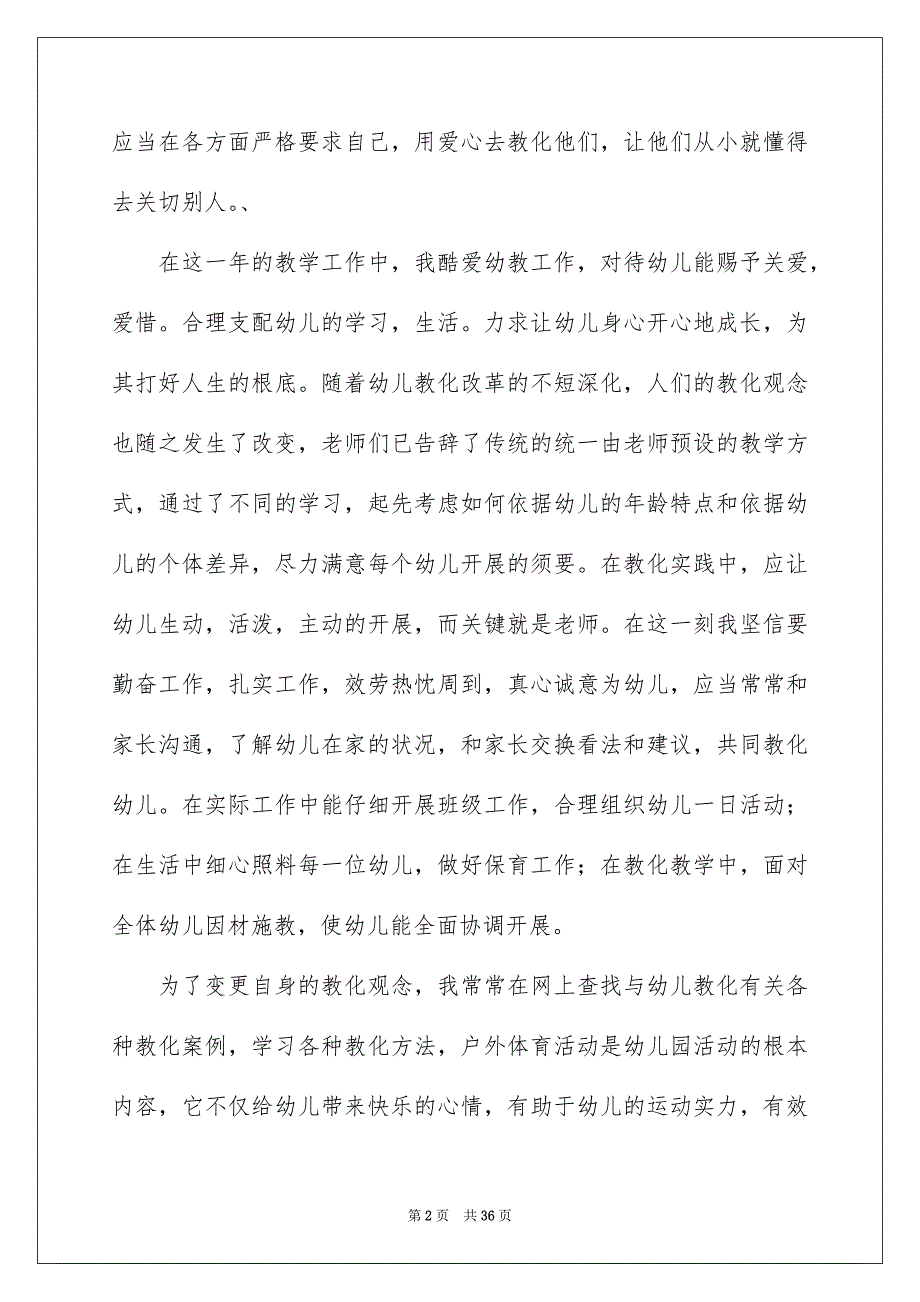 应当在各方面严格要求自己，用爱心去教化他们，让他们从小就懂得
去关切别人。、
在这一年的教学工作中，我酷爱幼教工作，对待幼儿能赐予关爱，
爱惜。合理支配幼儿的学习，生活。力求让幼儿身心开心地成长，为
其打好人生的根底。随着幼儿教化改革的不短深化，人们的教化观念
也随之发生了改变，老师们已告辞了传统的统一由老师预设的教学方
式，通过了不同的学习，起先考虑如何依据幼儿的年龄特点和依据幼
儿的个体差异，尽力满意每个幼儿开展的须要。在教化实践中，应让
幼儿生动，活泼，主动的开展，而关键就是老师。在这一刻我坚信要
勤奋工作，扎实工作，效劳热忱周到，真心诚意为幼儿，应当常常和
家长沟通，了解幼儿在家的状况，和家长交换看法和建议，共同教化
幼儿。在实际工作中能仔细开展班级工作，合理组织幼儿一日活动；
在生活中细心照料每一位幼儿，做好保育工作；在教化教学中，面对
全体幼儿因材施教，使幼儿能全面协调开展。
为了变更自身的教化观念，我常常在网上查找与幼儿教化有关各
种教化案例，学习各种教化方法，户外体育活动是幼儿园活动的根本
内容，它不仅给幼儿带来快乐的心情，有助于幼儿的运动实力，有效
第 2 页 共 36 页